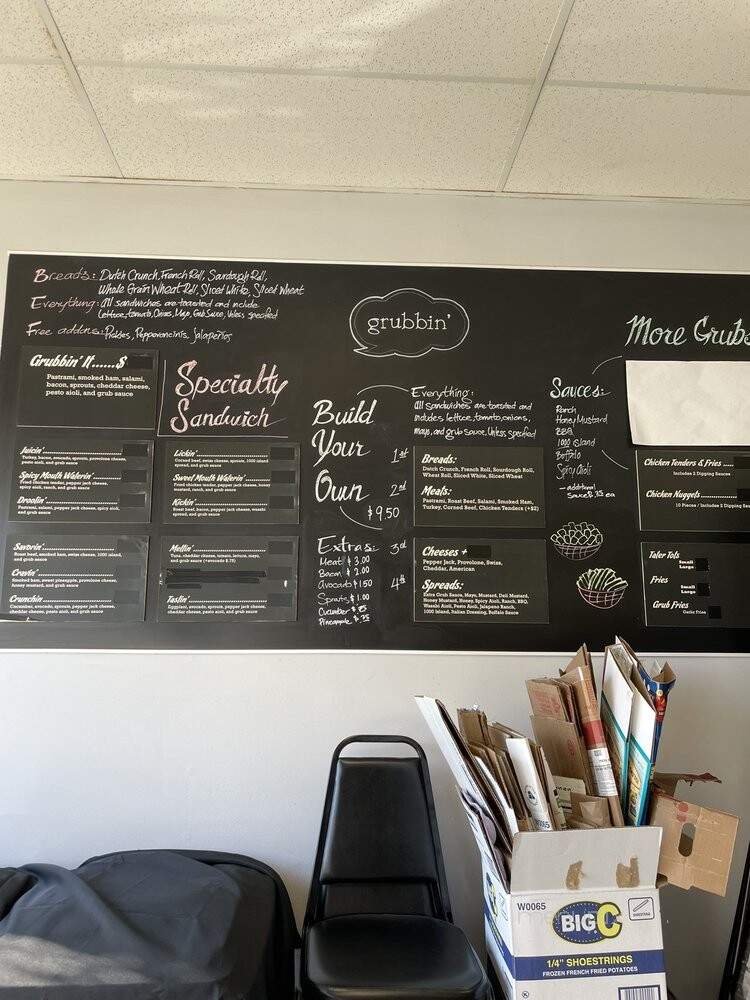 Breads: Dutch Crunch, French Roll, Sourdough Roll,
Whole Grain Wheat Roll, Sliced White, Sliced Wheat
Everything: All sandwiches are toasted and include
lettuce, tomato, Onions, Mayo, Grub Sauce, Unless specified
Free addons: Pickles, Pepperoncinis, Jalapeños
Grubbin' It......$
Pastrami, smoked ham, salami,
bacon, sprouts, cheddar cheese,
pesto aioli, and grub sauce
Specialty
Sandwich
Juicin'
Turkey, bacon, avocado, sprouts, provolone cheese,
pesto aioli, and grub sauce
Spicy Mouth Waterin'
Fried chicken tender, pepper jack cheese,
spicy aioli, ranch, and grub sauce
Droolin'
Pastrami, salami, pepper jack cheese, spicy
aioli, and grub sauce
Lickin'
Corned beef, swiss cheese, sprouts, 1000 island
spread, and grub sauce
Sweet Mouth Waterin'
Fried chicken tender, pepper jack cheese, honey
mustard, ranch, and grub sauce
Kickin'
Roast beef, bacon, pepper jack cheese, wasabi
spread, and grub sauce
Savorin'
Roast beef, smoked ham, swiss cheese, 1000 island,
and grub sauce
Cravin'
Smoked ham, sweet pineapple, provolone cheese,
honey mustard, and grub sauce
Crunchin'
Cucumber, avocado, sprouts, pepper jack cheese,
cheddar cheese, pesto aioli, and grub sauce
Meltin'
Tuna, cheddar cheese, tomato, lettuce, mayo,
and grub sauce (+avocado $.75)
Tastin'
Eggplant, avocado, sprouts, pepper jack cheese,
cheddar cheese, pesto aioli, and grub sauce
grubbin'
Build
Your
Own
$9.50
Everything:
All sandwiches are toasted and
includes lettuce, tomato, onions,
mayo, and grub sauce, Unless specified
1st
Breads:
Dutch Crunch, French Roll, Sourdough Roll,
Wheat Roll, Sliced White, Sliced Wheat
2nd
Meats:
Pastrami, Roast Beef, Salami, Smoked Ham,
Turkey, Corned Beef, Chicken Tenders (+$2)
3rd
Cheeses +
Pepper Jack, Provolone, Swiss,
Cheddar, American
4th
Spreads:
Extra Grub Sauce, Mayo, Mustard, Deli Mustard,
Honey Mustard, Honey, Spicy Aioli, Ranch, BBQ,
Wasabi Aioli, Pesto Aioli, Jalapeno Ranch,
1000 Island, Italian Dressing, Buffalo Sauce
Extras:
Meat $3.00
Bacon $2.00
Avocado $1.50
Sprouts $1.00
Cucumber $.75
Pineapple $.75
Sauces:
Ranch
Honey Mustard
BBQ
1000 Island
Buffalo
Spicy Aioli
- additional
Sauce $.75 ea
More Grubs
Chicken Tenders & Fries
Includes 2 Dipping Sauces
Chicken Nuggets
10 Pieces / Includes 2 Dipping
Tater Tots
Small
Large
Fries
Small
Large
Grub Fries
Garlic Fries
W0065
BIG C
SHOESTRING
1/4" SHOESTRINGS
FROZEN FRENCH FRIED POTATOES